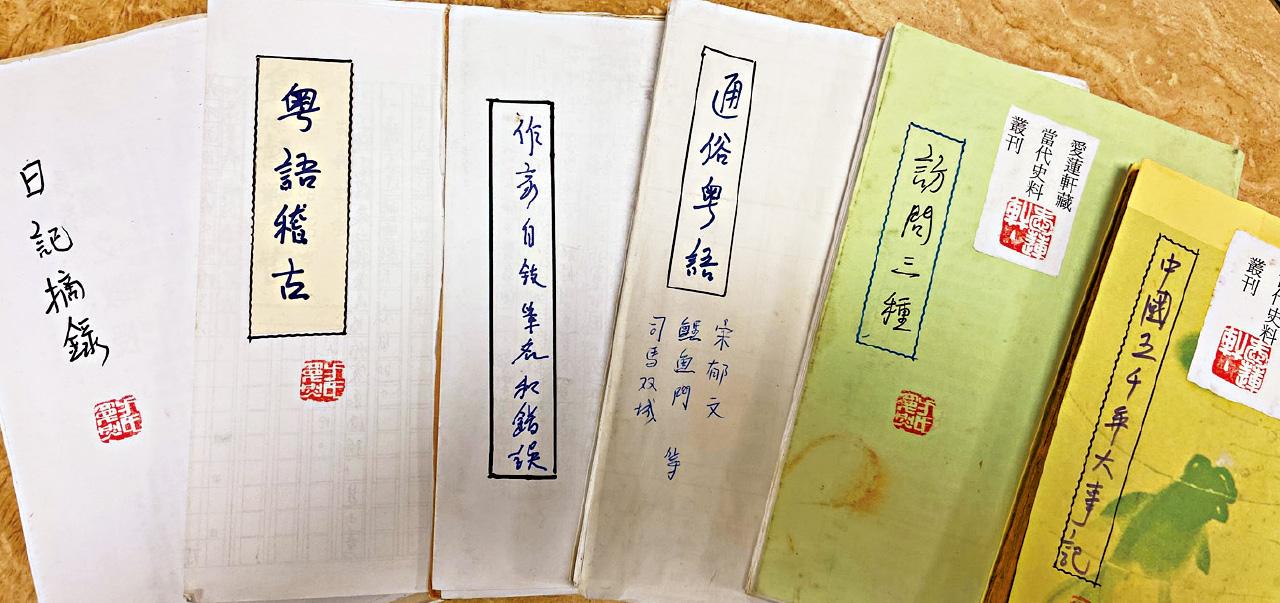 日記摘錄
粵語稽古
作家自敍筆名和錯誤
通俗粵語
宋郁文
鱷魚門
司馬双城
等
愛蓮軒藏
當代史料
叢刊
訪問三種
代史料
叢刊
中國五千年大事記